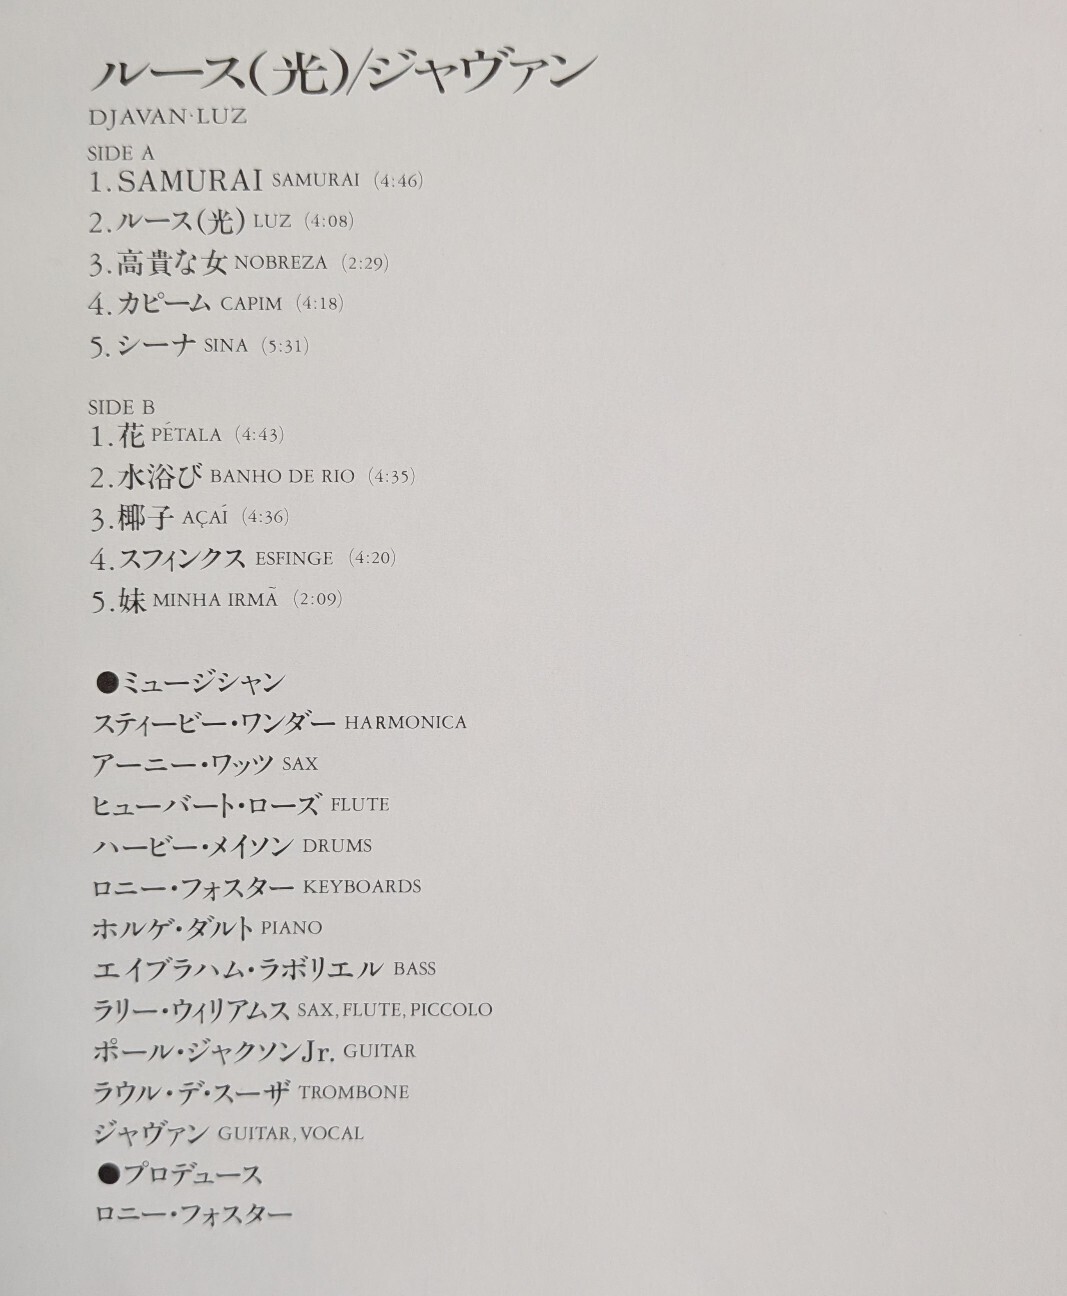 ルース(光)/ジャヴァン
DJAVAN·LUZ
SIDE A
1.SAMURAI SAMURAI (4:46)
2.ルース(光) LUZ (4:08)
3.高貴な女 NOBREZA (2:29)
4.カピーム CAPIM (4:18)
5.シーナ SINA (5:31)
SIDE B
1.花 PÉTALA (4:43)
2.水浴び BANHO DE RIO (4:35)
3.椰子 AÇAÍ (4:36)
4.スフィンクス ESFINGE (4:20)
5.妹 MINHA IRMÃ (2:09)
●ミュージシャン
スティービー・ワンダー HARMONICA
アーニー・ワッツ SAX
ヒューバート・ローズ FLUTE
ハービー・メイソン DRUMS
ロニー・フォスター KEYBOARDS
ホルゲ・ダルト PIANO
エイブラハム・ラボリエル BASS
ラリー・ウィリアムス SAX, FLUTE, PICCOLO
ポール・ジャクソンJr. GUITAR
ラウル・デ・スーザ TROMBONE
ジャヴァン GUITAR, VOCAL
●プロデュース
ロニー・フォスター